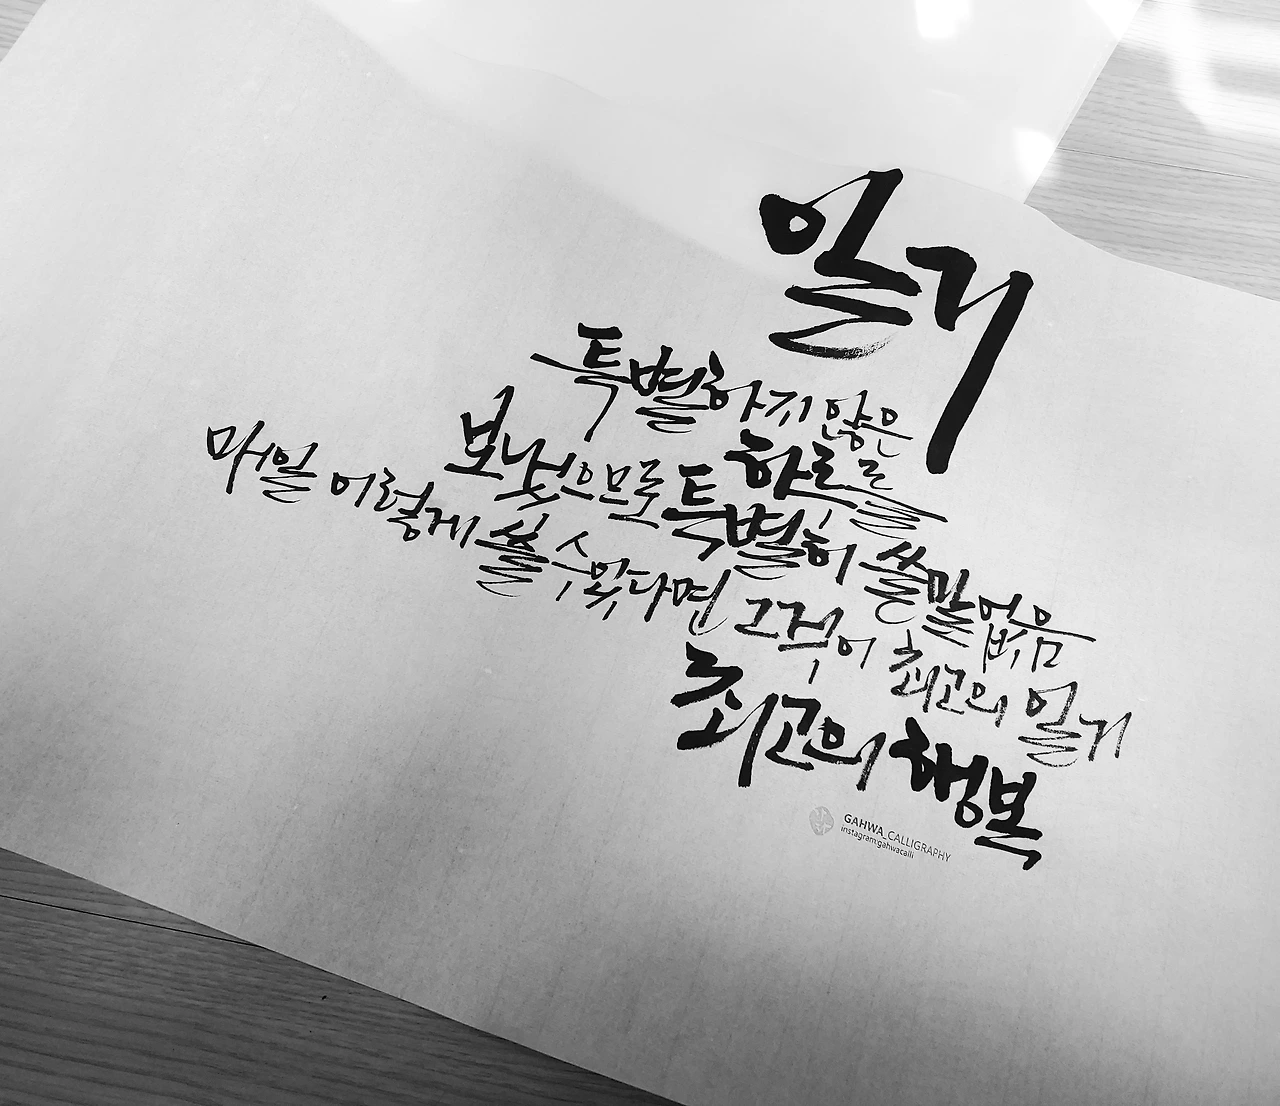 일기
특별하지 않은
하루를
보냈으므로 특별히 쓸 말 없음
매일 이렇게 쓸 수 있다면 그것이 최고의 일기
최고의 행복
GAHWA_CALLIGRAPHY
instagram:gahwacalli